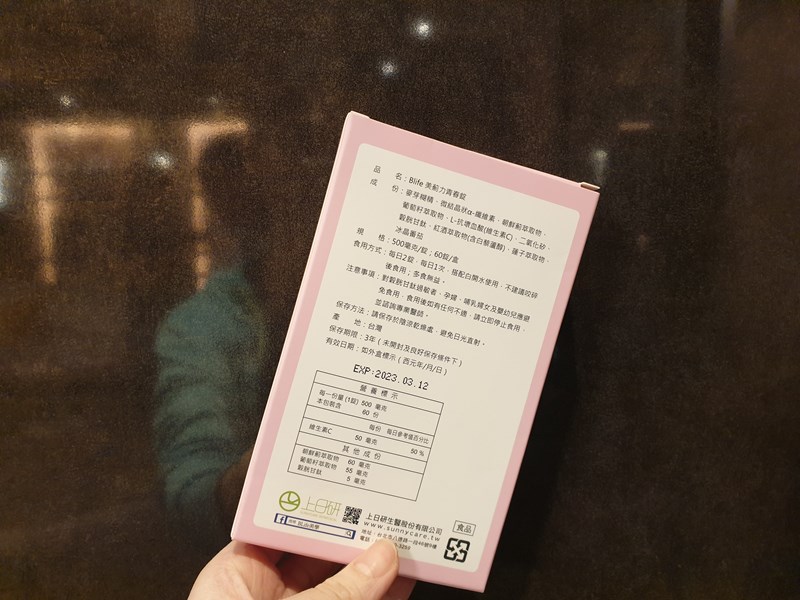 品　　名：Blife 美薊力青春錠
成　　份：麥芽糊精、微結晶狀α-纖維素、朝鮮薊萃取物、
葡萄籽萃取物、L-抗壞血酸(維生素C)、二氧化矽、
穀胱甘肽、紅酒萃取物(含白藜蘆醇)、蓮子萃取物、
冰晶番茄
規　　格：500毫克/錠；60錠/盒
食用方式：每日2錠，每日1次，搭配白開水使用，不建議咬碎
後食用；多食無益。
注意事項：對穀胱甘肽過敏者、孕婦、哺乳婦女及嬰幼兒應避
免食用，食用後如有任何不適，請立即停止食用，
並諮詢專業醫師。
保存方法：請保存於陰涼乾燥處，避免日光直射。
產　　地：台灣
保存期限：3年（未開封及良好保存條件下）
有效日期：如外盒標示（西元年/月/日）
EXP:2023.03.12
營養標示
每一份量(1錠) 500 毫克
本包裝含 60 份
每份 每日參考值百分比
維生素C 50 毫克 50 %
其他成份
朝鮮薊萃取物 60 毫克
葡萄籽萃取物 55 毫克
穀胱甘肽 5 毫克
上日研
上日研生醫股份有限公司
www.sunnycare.tw
食品